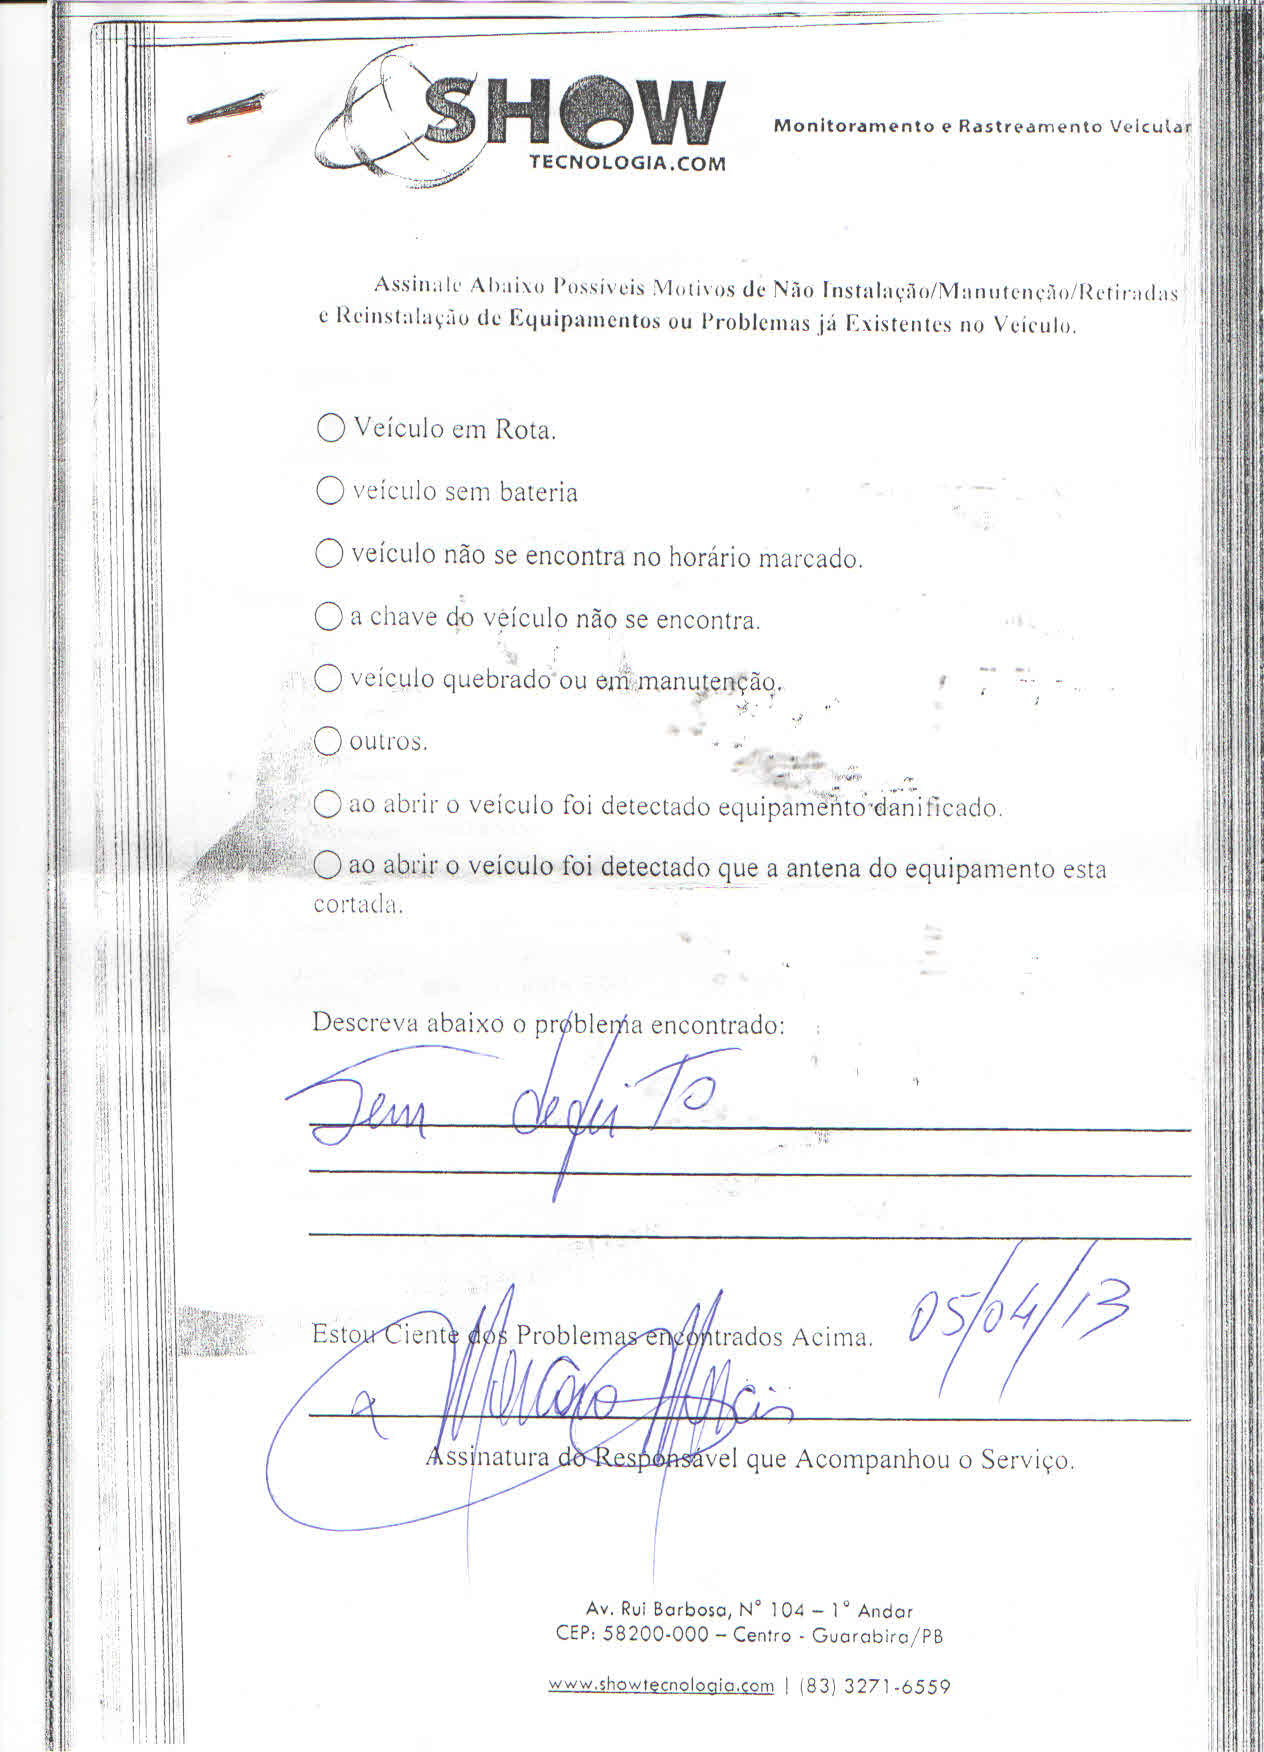 SHOW
TECNOLOGIA.COM
Monitoramento e Rastreamento Veicular
Assinale Abaixo Possíveis Motivos de Não Instalação/Manutenção/Retiradas
e Reinstalação de Equipamentos ou Problemas já Existentes no Veículo.
Veículo em Rota.
veículo sem bateria
veículo não se encontra no horário marcado.
a chave do veículo não se encontra.
veículo quebrado ou em manutenção.
outros.
ao abrir o veículo foi detectado equipamento danificado.
ao abrir o veículo foi detectado que a antena do equipamento esta
cortada.
Descreva abaixo o problema encontrado:
Sem defeito
05/04/13
Estou Ciente dos Problemas encontrados Acima.
Assinatura do Responsável que Acompanhou o Serviço.
Av. Rui Barbosa, N° 104 – 1° Andar
CEP: 58200-000 – Centro - Guarabira/PB
www.showtecnologia.com | (83) 3271-6559